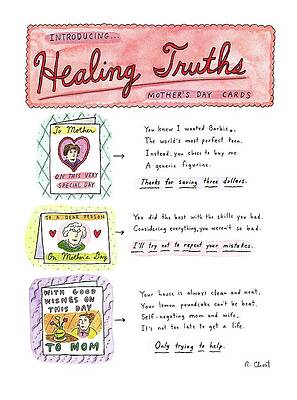 INTRODUCING...
Healing Truths
MOTHER'S DAY CARDS
To Mother
ON THIS VERY
SPECIAL DAY
You knew I wanted Barbie®.
The world's most perfect teen.
Instead, you chose to buy me
A generic figurine.
Thanks for saving three dollars.
TO A DEAR PERSON
On Mother's Day
You did the best with the skills you had.
Considering everything, you weren't so bad.
I'll try not to repeat your mistakes.
WITH GOOD
WISHES ON
THIS DAY
TO MOM
Your house is always clean and neat,
Your lemon poundcake can't be beat.
Self-negating mom and wife,
It's not too late to get a life.
Only trying to help.
R. Chast